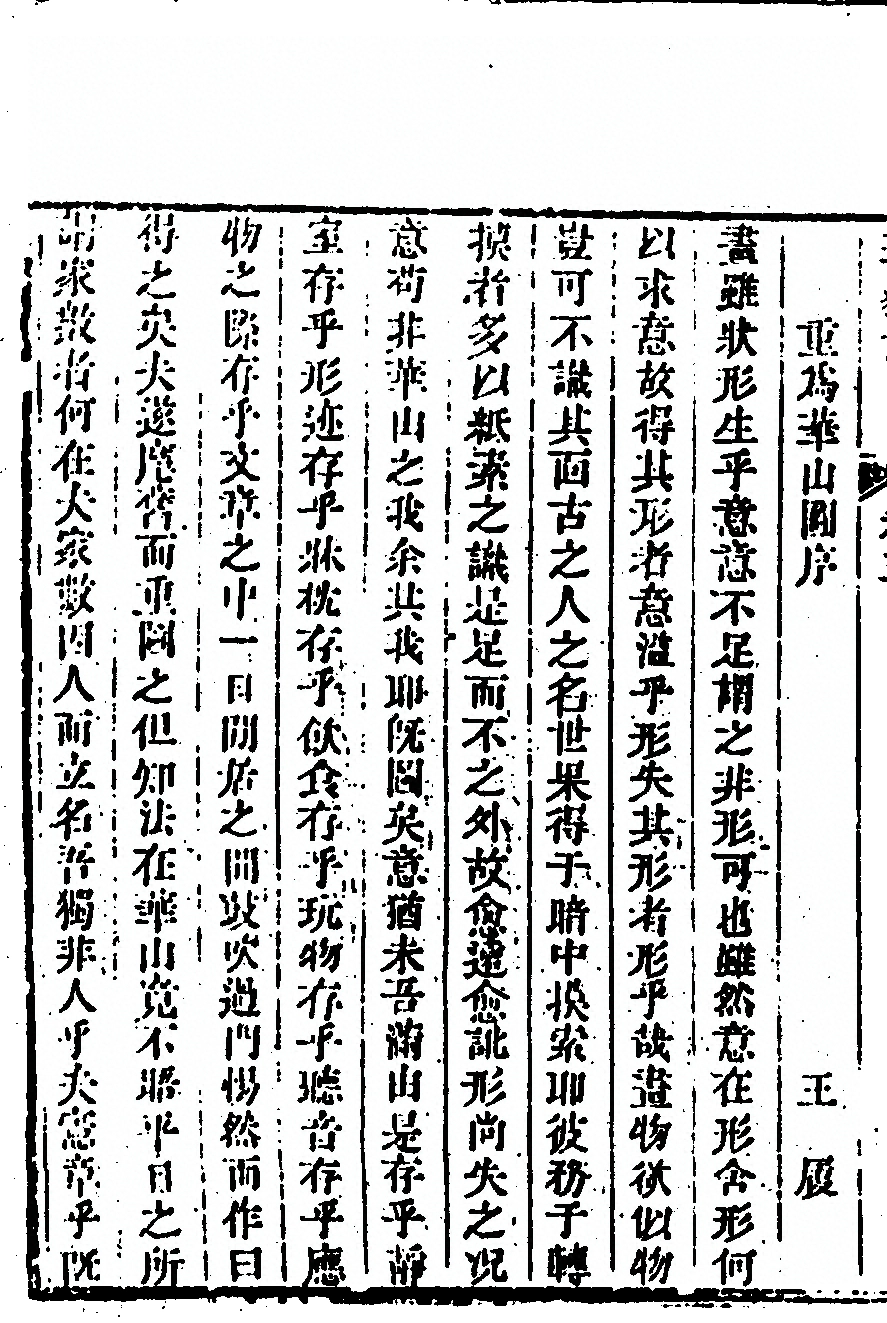 重爲華山圖序　王履
畫雖狀形生乎意意不足謂之非形可也雖然意在形舍形何
以求意故得其形者意溢乎形失其形者形乎哉畫物欲似物
豈可不識其面古之人之名世果得于暗中摸索耶彼務于轉
摸者多以紙素之識是足而不之外故愈遠愈訛形尚失之况
意苟非華山之我余余其我耶既圖矣意猶未吾滿由是存乎靜
室存乎形迹存乎牀枕存乎飲食存乎玩物存乎聽音存乎應
物之隙存乎文章之中一日閒居之間鼓吹過門惕然而作曰
得之矣夫遂麾舊而重圖之但知法在華山竟不悟平日之所
謂家數者何在夫家數因人而立名吾獨非人乎夫憲章乎既